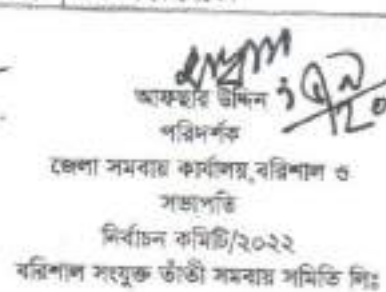 আফছার উদ্দিন
পরিদর্শক
জেলা সমবায় কার্যালয়,বরিশাল ও
সভাপতি
নির্বাচন কমিটি/২০২২
বরিশাল সংযুক্ত তাঁতী সমবায় সমিতি লিঃ